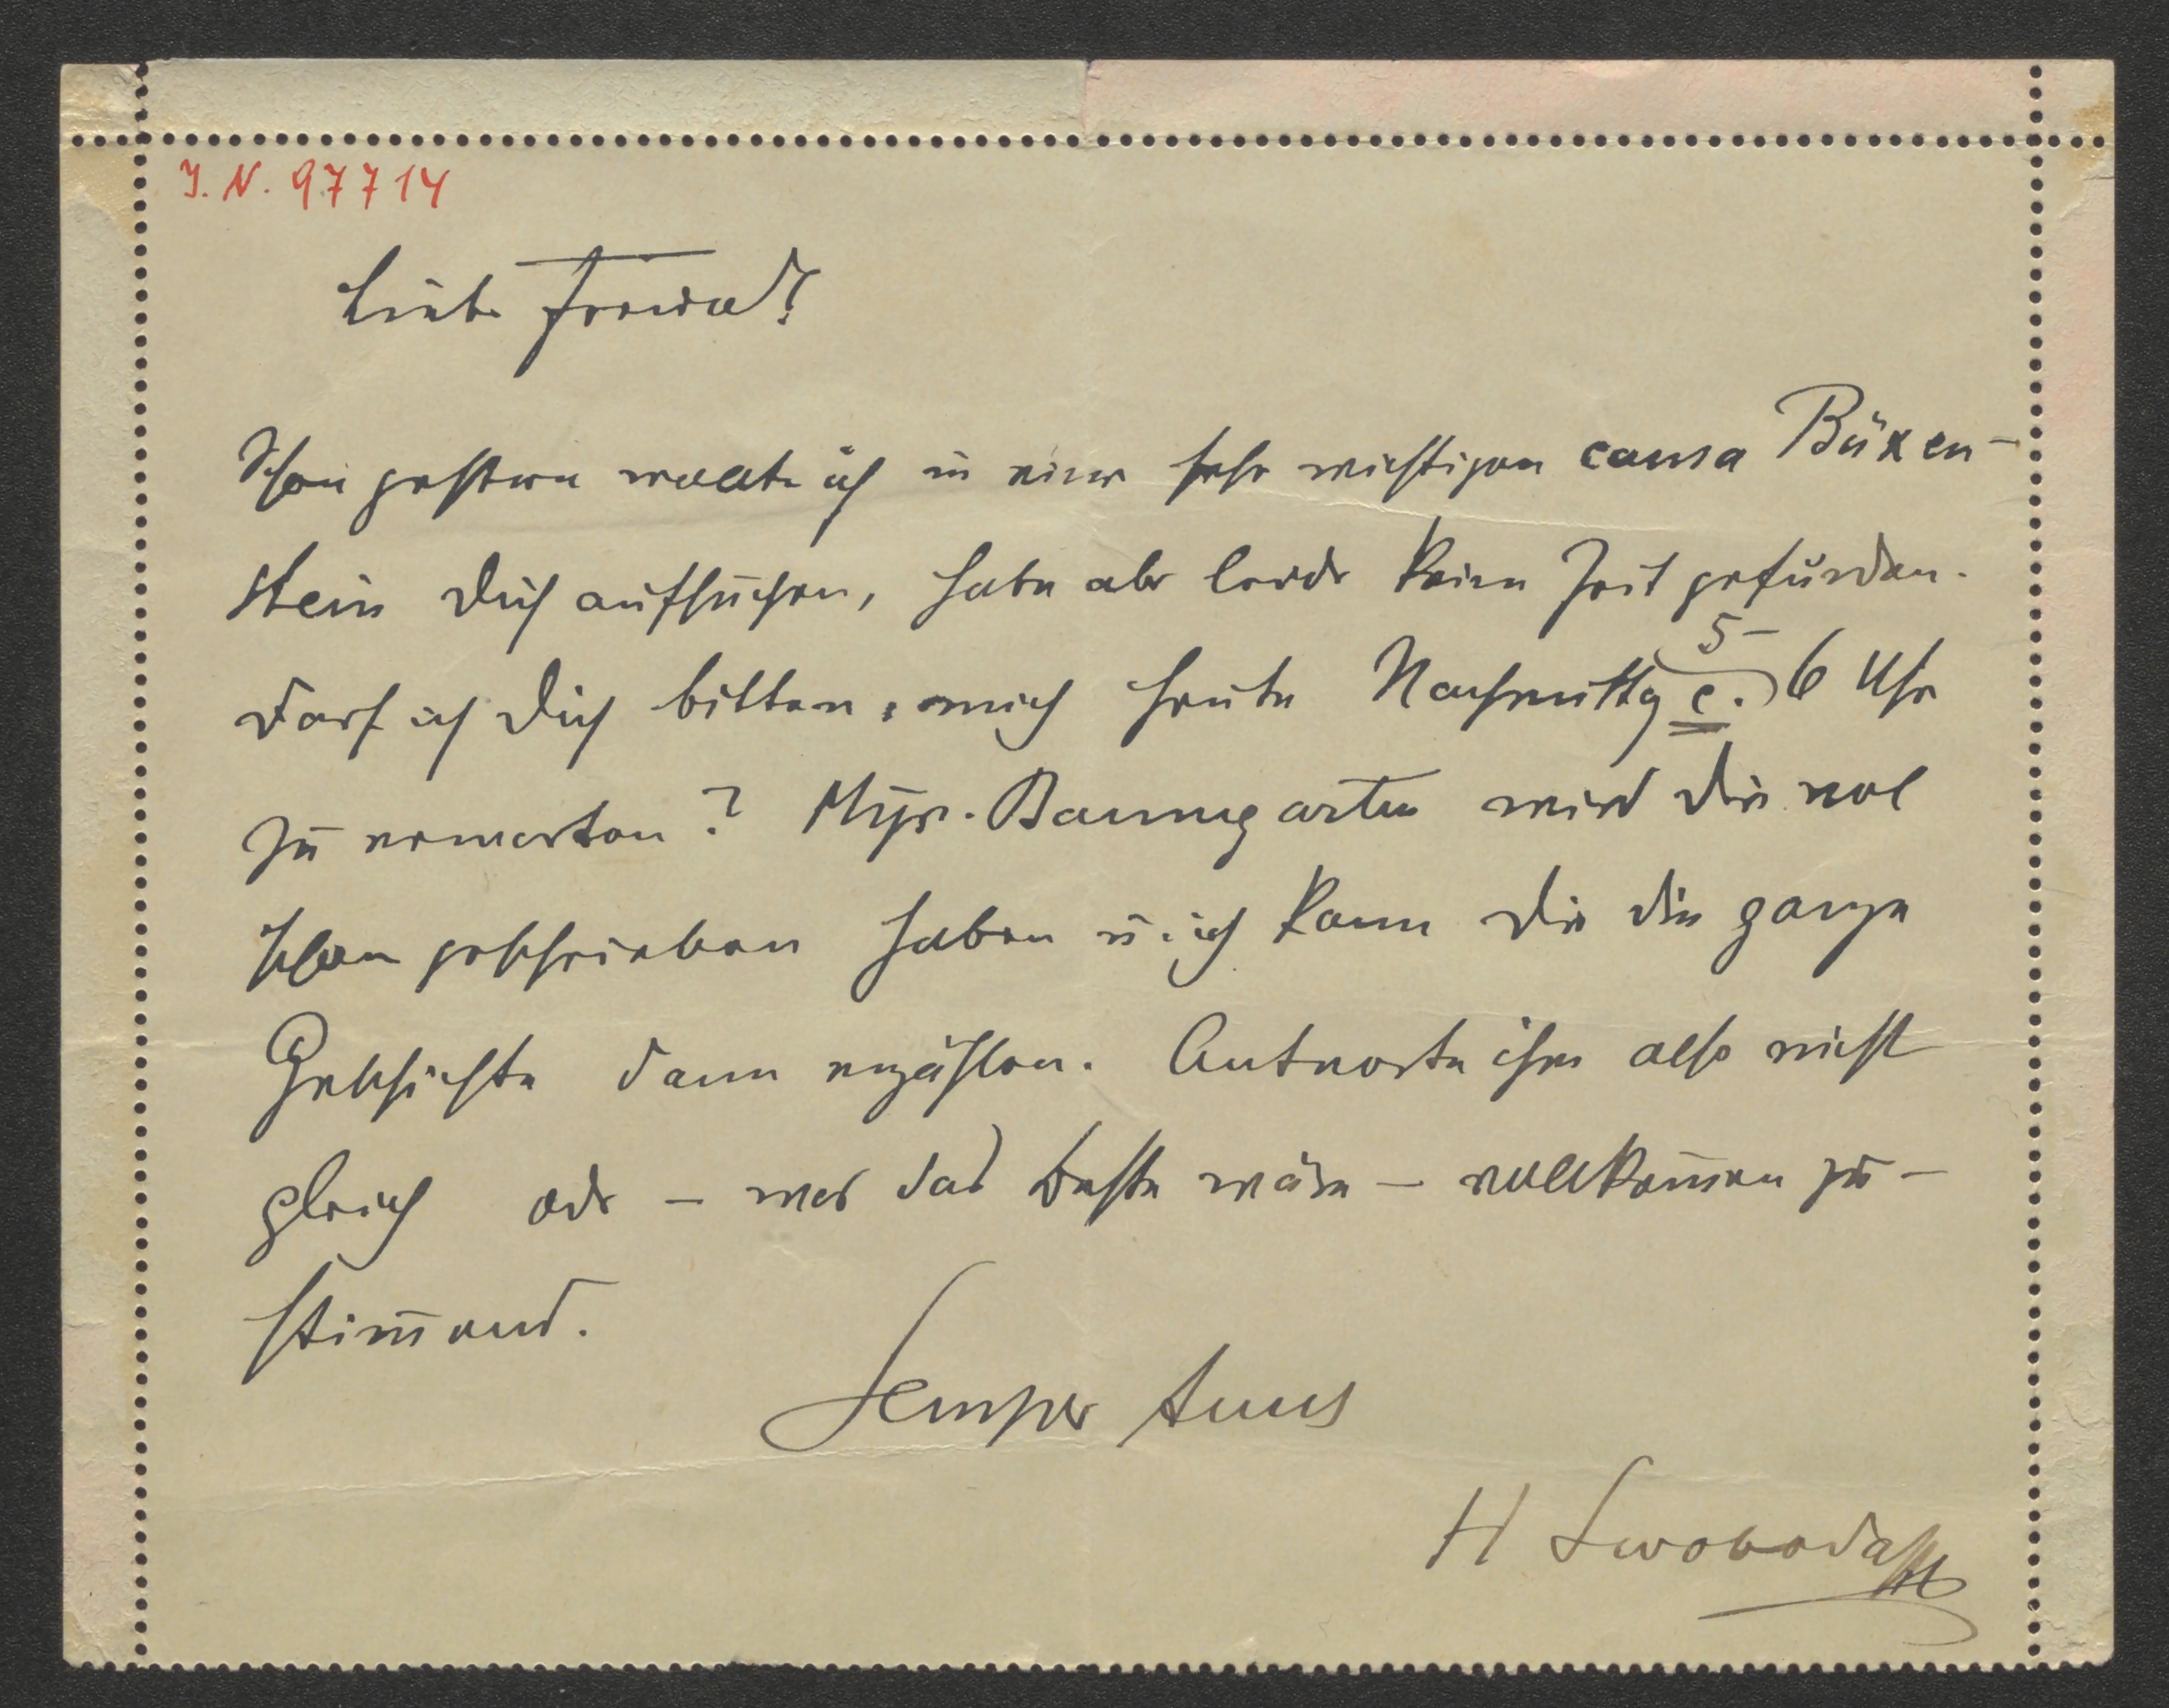 I. N. 97714
Lieber Freund!
Schon gestern wollte ich in einer sehr wichtigen causa Büxen-
stein Dich aufsuchen, habe aber leider keine Zeit gefunden.
Darf ich Dich bitten, mich heute Nachmittg c. 5-6 Uhr
zu erwarten? Msgr. Baumgarten wird Dir wol
schon geschrieben haben u. ich kann Dir die ganze
Geschichte dann erzählen. Antworte ihm also nicht
gleich oder – was das beste wäre – vollkom̅en zu-
stim̅end.
Semper tuus
H Swoboda